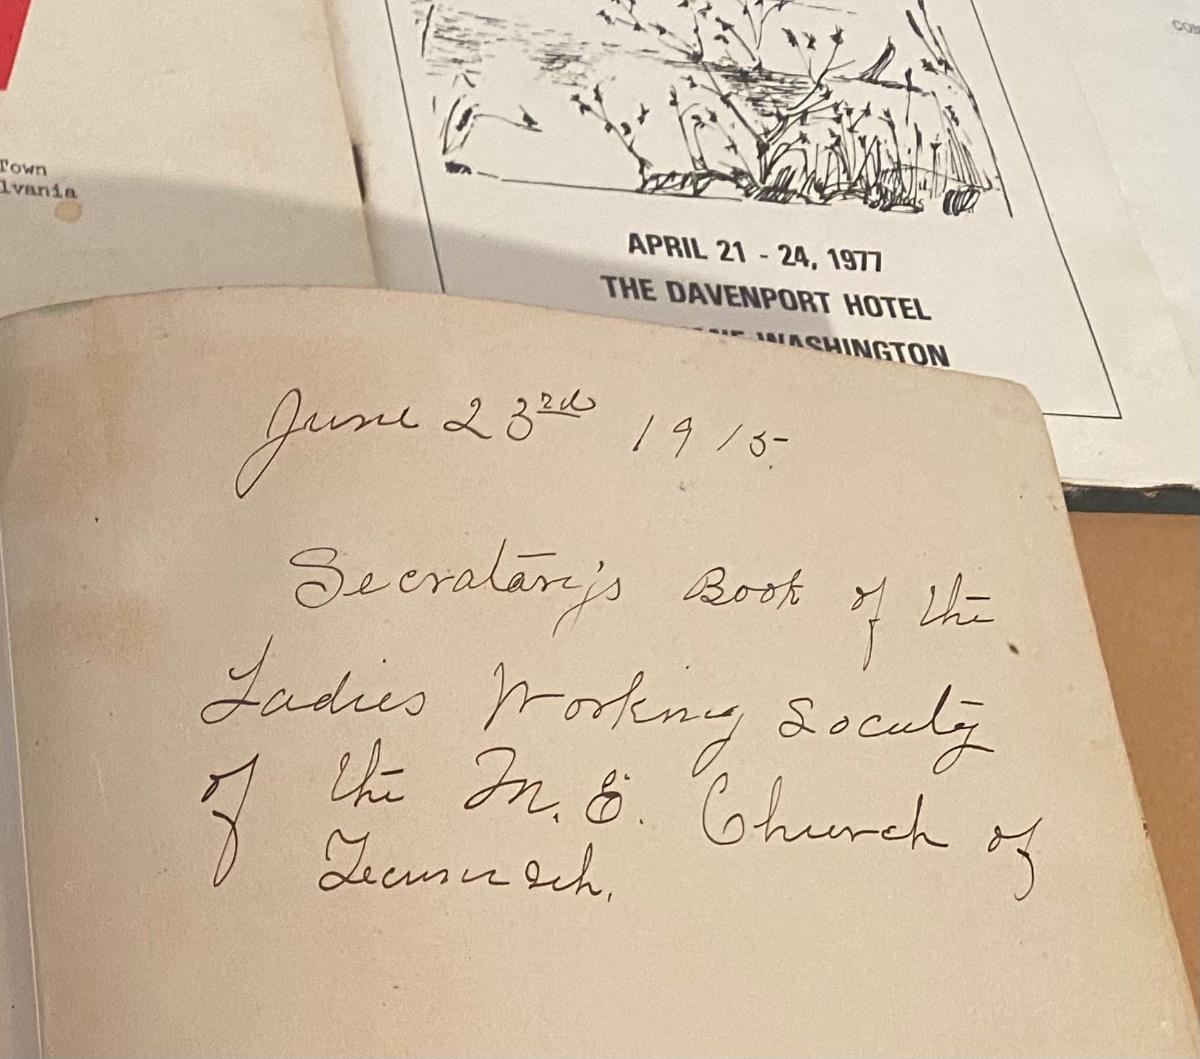 COM
Town
lvania
APRIL 21 - 24, 1977
THE DAVENPORT HOTEL
WASHINGTON
June 23rd 1915-
Secratary's Book of the
Ladies Working Society
of the M. E. Church of
Tecumseh.